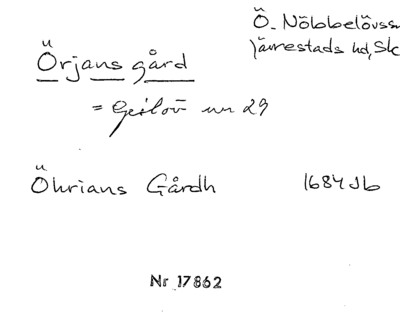 Ö. Nöbbelövs sn
Järrestads hd, Sk
Örjans gård
= Geilöv nr 29
Öhrians Gårdh 1684 Jb
Nr 17862